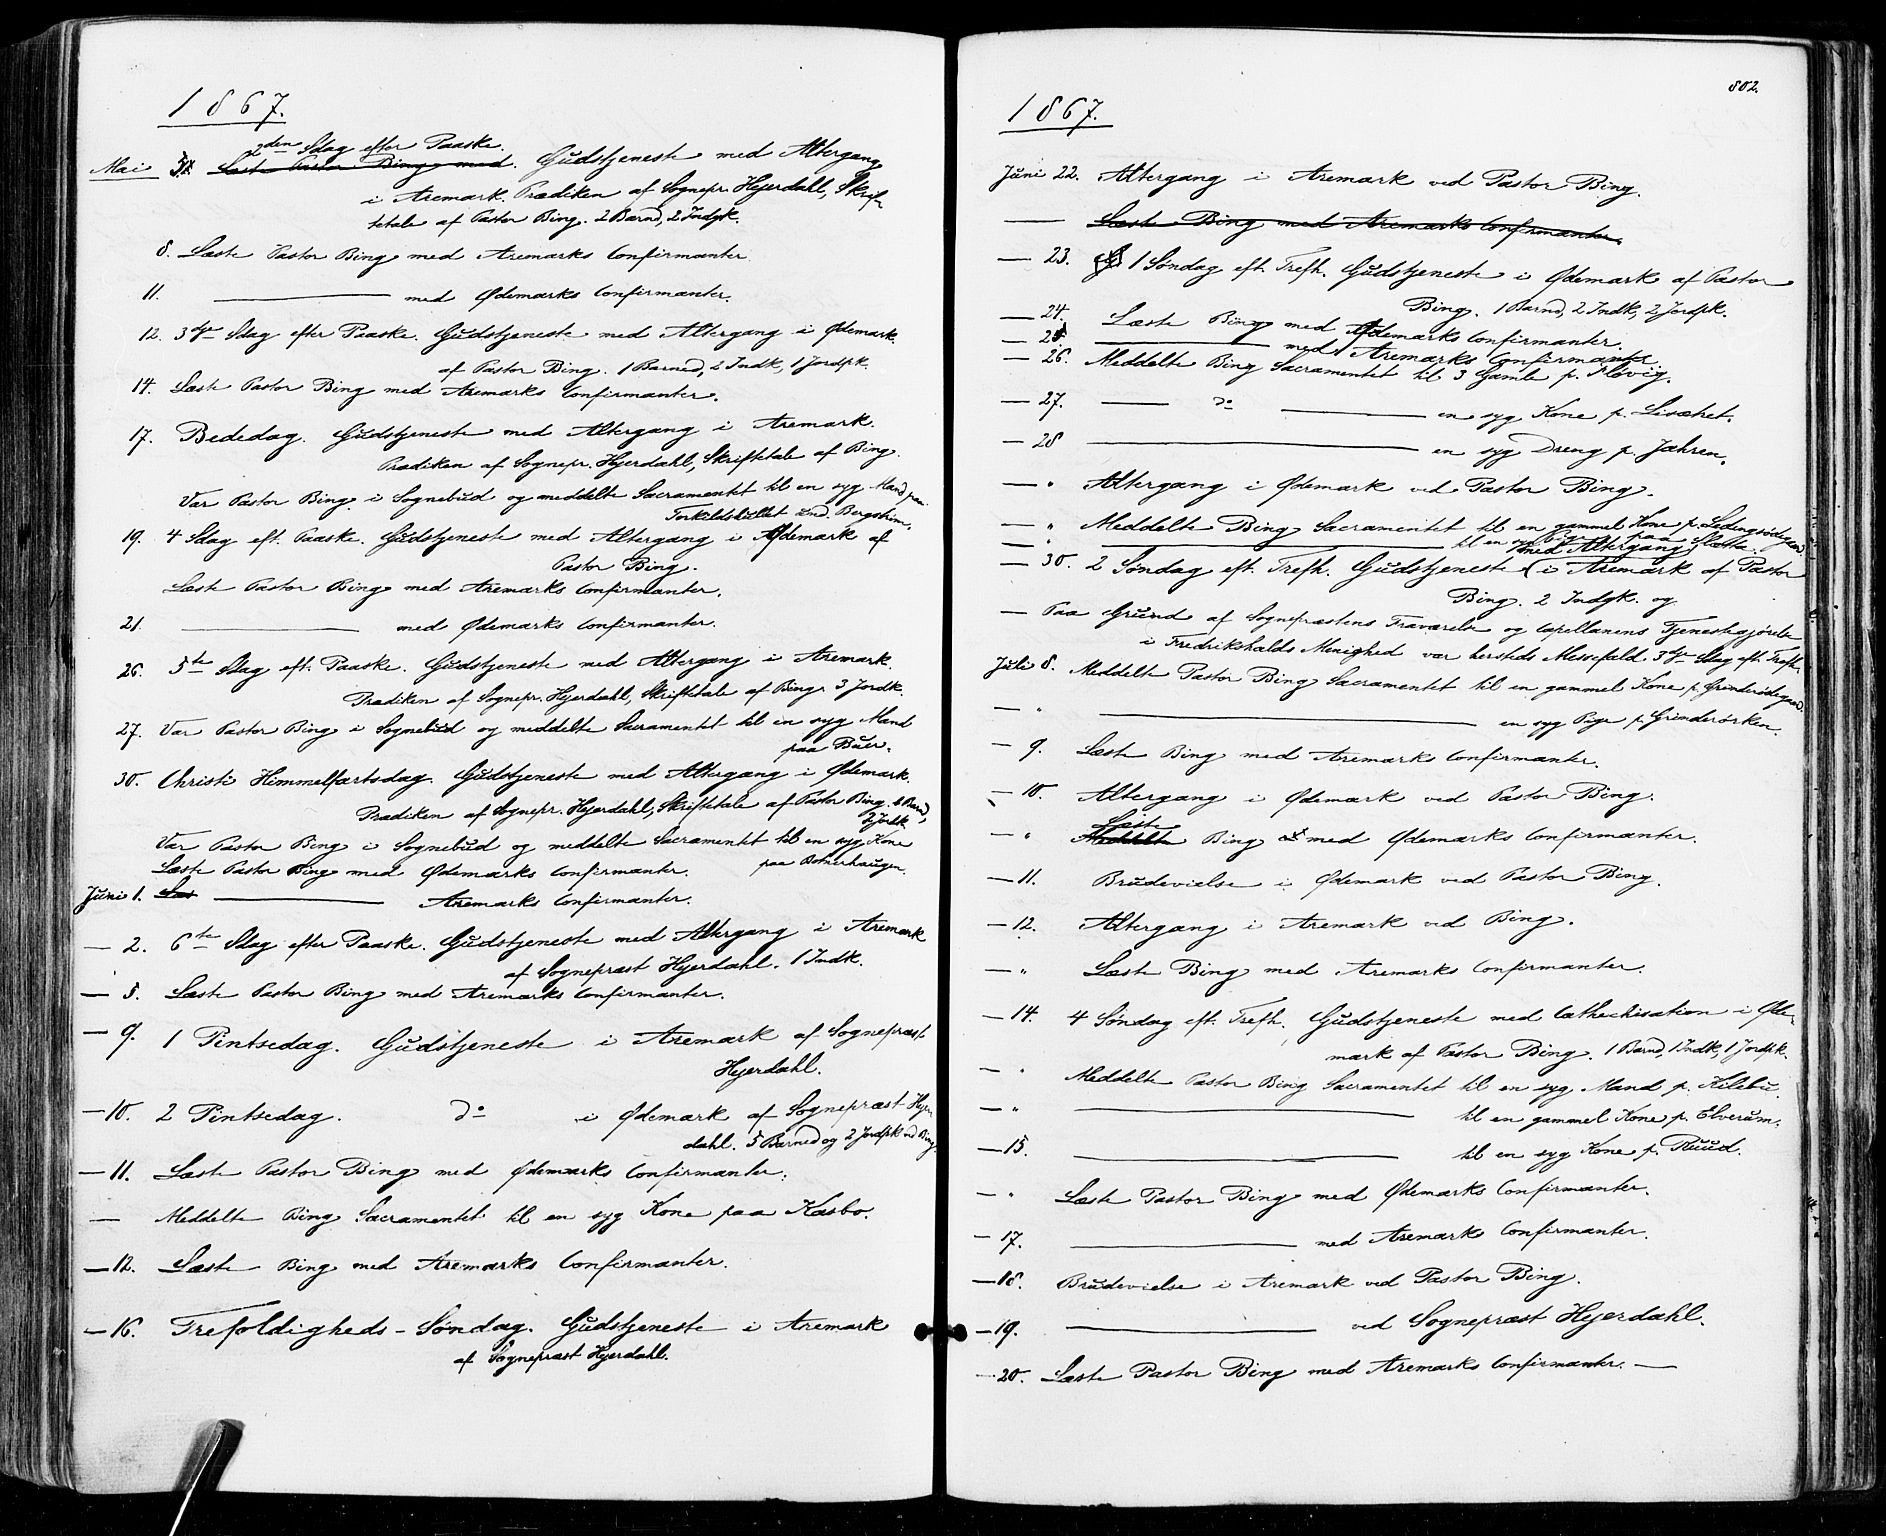 1867.
2den Sdag efter Paaske.
Mai 5. Læste Pastor Bing med. Gudstjeneste med Altergang
i Aremark. Prædiken af Sognepr. Hjerdahl, Skrif-
tetale af Pastor Bing. 2 Barnd, 2 Indgk.
8. Læste Pastor Bing med Aremarks Confirmanter.
11. ——— med Ødemarks Confirmanter.
12. 3die Sdag efter Paaske. Gudstjeneste med Altergang i Ødemark
af Pastor Bing. 1 Barned, 2 Indk, 1 Jordpk.
14. Læste Pastor Bing med Aremarks Confirmanter.
17. Bededag. Gudstjeneste med Altergang i Aremark.
Prædiken af Sognepr. Hjerdahl, Skriftetale af Bing.
Var Pastor Bing i Sognebud og meddelte Sacramentet til en syg Mand paa
Torkildsbullet und. Bergstrim.
19. 4 Sdag eft. Paaske. Gudstjeneste med Altergang i Ødemark af
Pastor Bing.
Læste Pastor Bing med Aremarks Confirmanter.
21. ——— med Ødemarks Confirmanter.
26. 5te Sdag eft. Paaske. Gudstjeneste med Altergang i Aremark.
Prædiken af Sognepr. Hjerdahl, Skriftetale af Bing. 3 Jordk.
27. Var Pastor Bing i Sognebud og meddelte Sacramentet til en syg Mand
paa Buer.
30. Christi Himmelfartsdag. Gudstjeneste med Altergang i Ødemark.
Prædiken af Sognepr. Hjerdahl, Skriftetale af Pastor Bing. 6 Barnd,
2 Jordk
Var Pastor Bing i Sognebud og meddelte Sacramentet til en syg Kone
paa Bomerhaugen.
Læste Pastor Bing med Ødemarks Confirmanter.
Juni 1. Læs ——— Aremarks Confirmanter.
— 2. 6te Sdag efter Paaske. Gudstjeneste med Altergang i Aremark
af Sognepræst Hjerdahl. 1 Indk.
— 5. Læste Pastor Bing med Aremarks Confirmanter.
— 9. 1 Pintsedag. Gudstjeneste i Aremark af Sognepræst
Hjerdahl.
— 10. 2 Pintsedag. do i Ødemark af Sognepræst Hjer-
dahl. 5 Barned og 2 Jordpk ved Bing.
— 11. Læste Pastor Bing med Ødemarks Confirmanter.
— Meddelte Bing Sacramentet til en syg Kone paa Kasbo.
— 12. Læste Bing med Aremarks Confirmanter.
— 16. Trefoldigheds-Søndag. Gudstjeneste i Aremark
af Sognepræst Hjerdahl.
802.
1867.
Juni 22. Altergang i Aremark ved Pastor Bing.
— Læste Bing med Aremarks Confirmanter.
— 23. 1 Søndag eft. Trefh. Gudstjeneste i Ødemark af Pastor
Bing. 1 Barnd, 2 Indk, 2 Jordpk.
— 24. Læste Bing med Ødemarks Confirmanter.
— 25 ——— med Aremarks Confirmanter
— 26. Meddelte Bing Sacramentet til 3 Gamle p. Kløvig.
— 27. — do — en syg Kone p. Lisæhet.
— 28 ——— en syg Dreng p. Jahren.
— " Altergang i Ødemark ved Pastor Bing.
— " Meddelte Bing Sacramentet til en gammel Kone p. Ledengsødegaard.
— " ——— til en syg Pige paa Slætta.
med Altergang
— 30. 2 Søndag eft. Trefh. Gudstjeneste i Aremark af Pastor
Bing. 2 Indgk. og
— Paa Grund af Sognepræstens Fraværelse og Capellanens Tjenestegjørelse
i Fredrikshalds Menighed var hersteds Messefald 3die Sdag eft. Trefh.
Juli 8. Meddelte Pastor Bing Sacramentet til en gammel Kone p. Grinderødegaard.
— " ——— en syg Pige p. Grinderørken.
— 9. Læste Bing med Aremarks Confirmanter.
— 10. Altergang i Ødemark ved Pastor Bing.
Læste
— " Meddelte Bing med Ødemarks Confirmanter.
— 11. Brudevielse i Ødemark ved Pastor Bing.
— 12. Altergang i Aremark ved Bing.
— " Læste Bing med Aremarks Confirmanter.
— 14. 4 Søndag eft. Trefh. Gudstjeneste med Cathechisation i Øde-
mark af Pastor Bing. 1 Barnd, 1 Indk, 1 Jordpk.
— " Meddelte Pastor Bing Sacramentet til en syg Mand p. Kilebu.
— " ——— til en gammel Kone p. Elverum.
— 15. ——— til en syg Kone p. Ruud.
— " Læste Pastor Bing med Ødemarks Confirmanter.
— 17. ——— med Aremarks Confirmanter.
— 18. Brudevielse i Aremark ved Pastor Bing.
— 19. ——— ved Sognepræst Hjerdahl.
— 20. Læste Pastor Bing med Aremarks Confirmanter. —